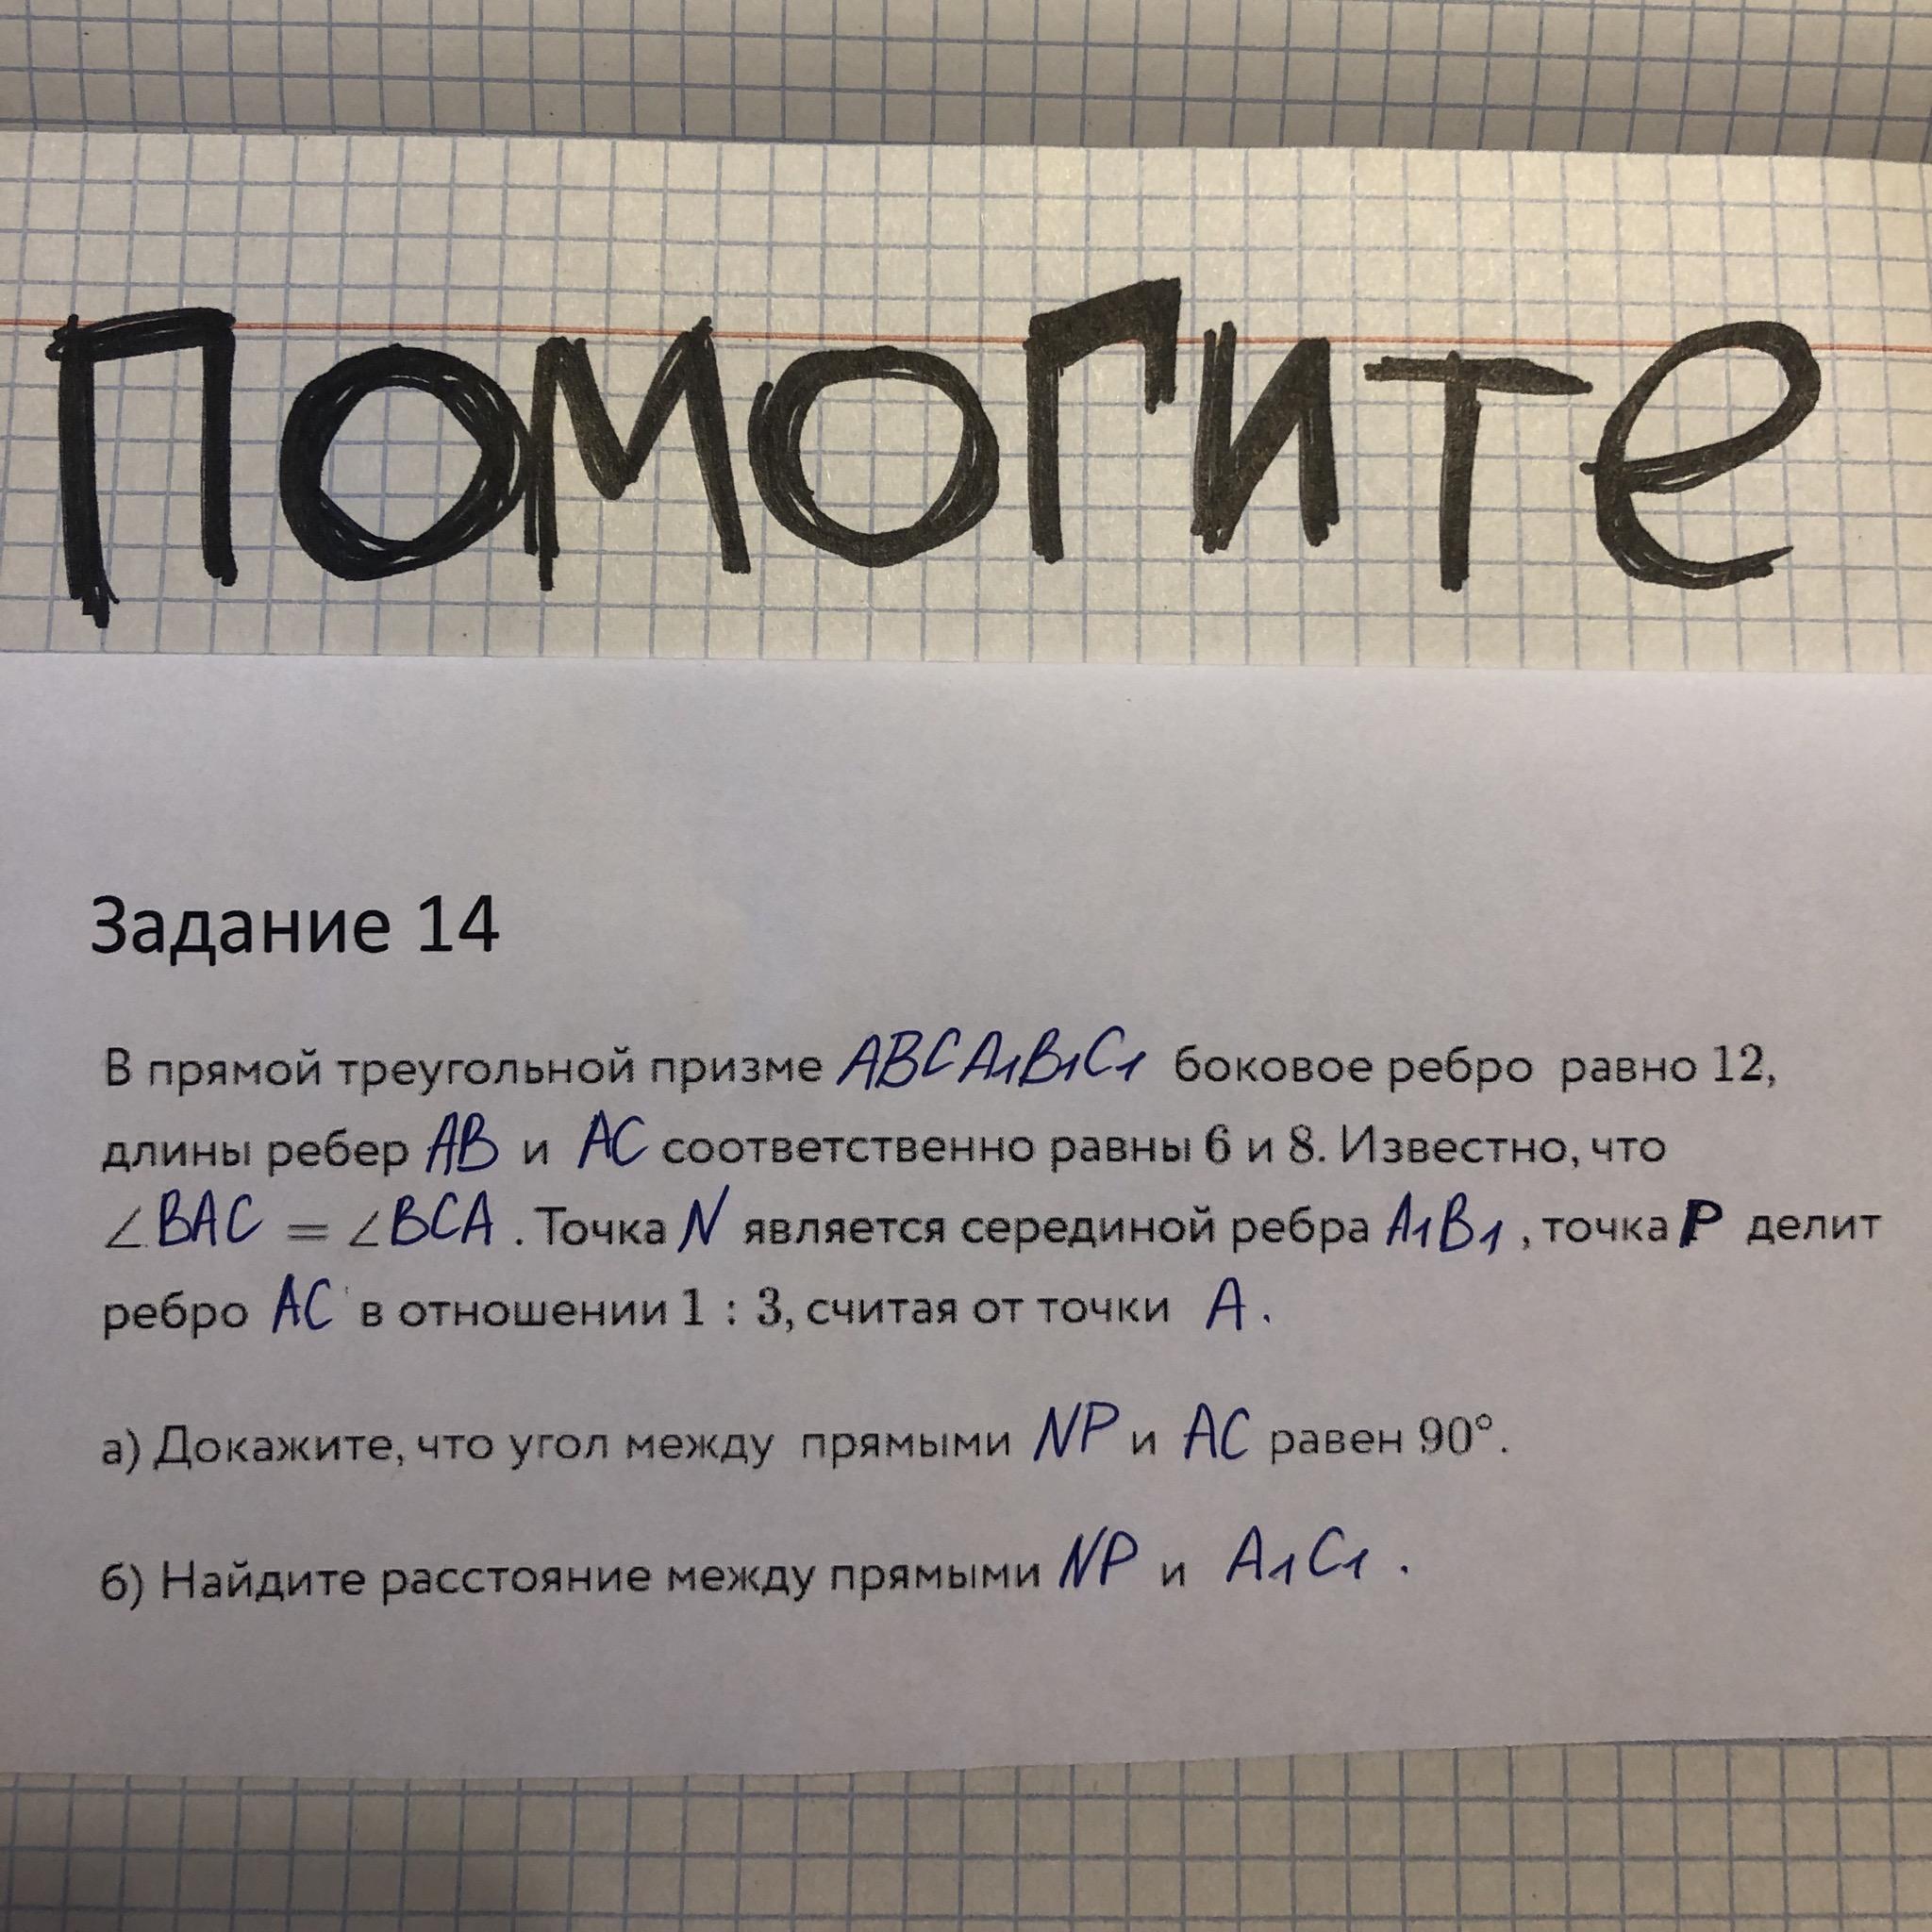 Помогите
Задание 14
В прямой треугольной призме ABCA₁B₁C₁ боковое ребро равно 12,
длины ребер AB и AC соответственно равны 6 и 8. Известно, что
∠BAC = ∠BCA. Точка N является серединой ребра A₁B₁, точка P делит
ребро AC в отношении 1 : 3, считая от точки A.
а) Докажите, что угол между прямыми NP и AC равен 90°.
б) Найдите расстояние между прямыми NP и A₁C₁.